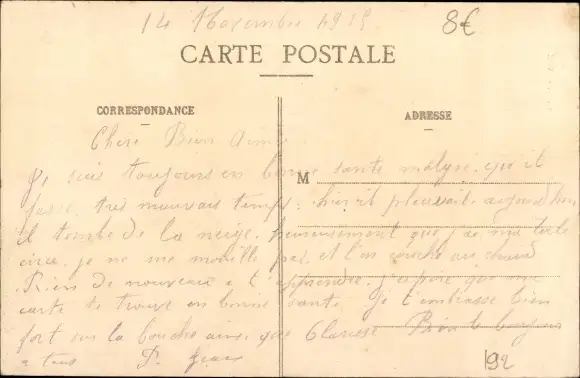 14 Novembre 1915
8€
CARTE POSTALE
CORRESPONDANCE
ADRESSE
M
Chère Bien Aimée
Je suis toujours en bonne santé malgré qu'il
fasse très mauvais temps. hier il pleuvait aujourd'hui
il tombe de la neige. heureusement que j'ai ma toile
cirée. je ne me mouille pas. et l'on couche au chaud
Rien de nouveau a t'apprendre. j'espère que ma
carte te trouve en bonne santé. Je t'embrasse bien
fort sur la bouche ainsi que Clarisse Bien le bonjour
a tous
92